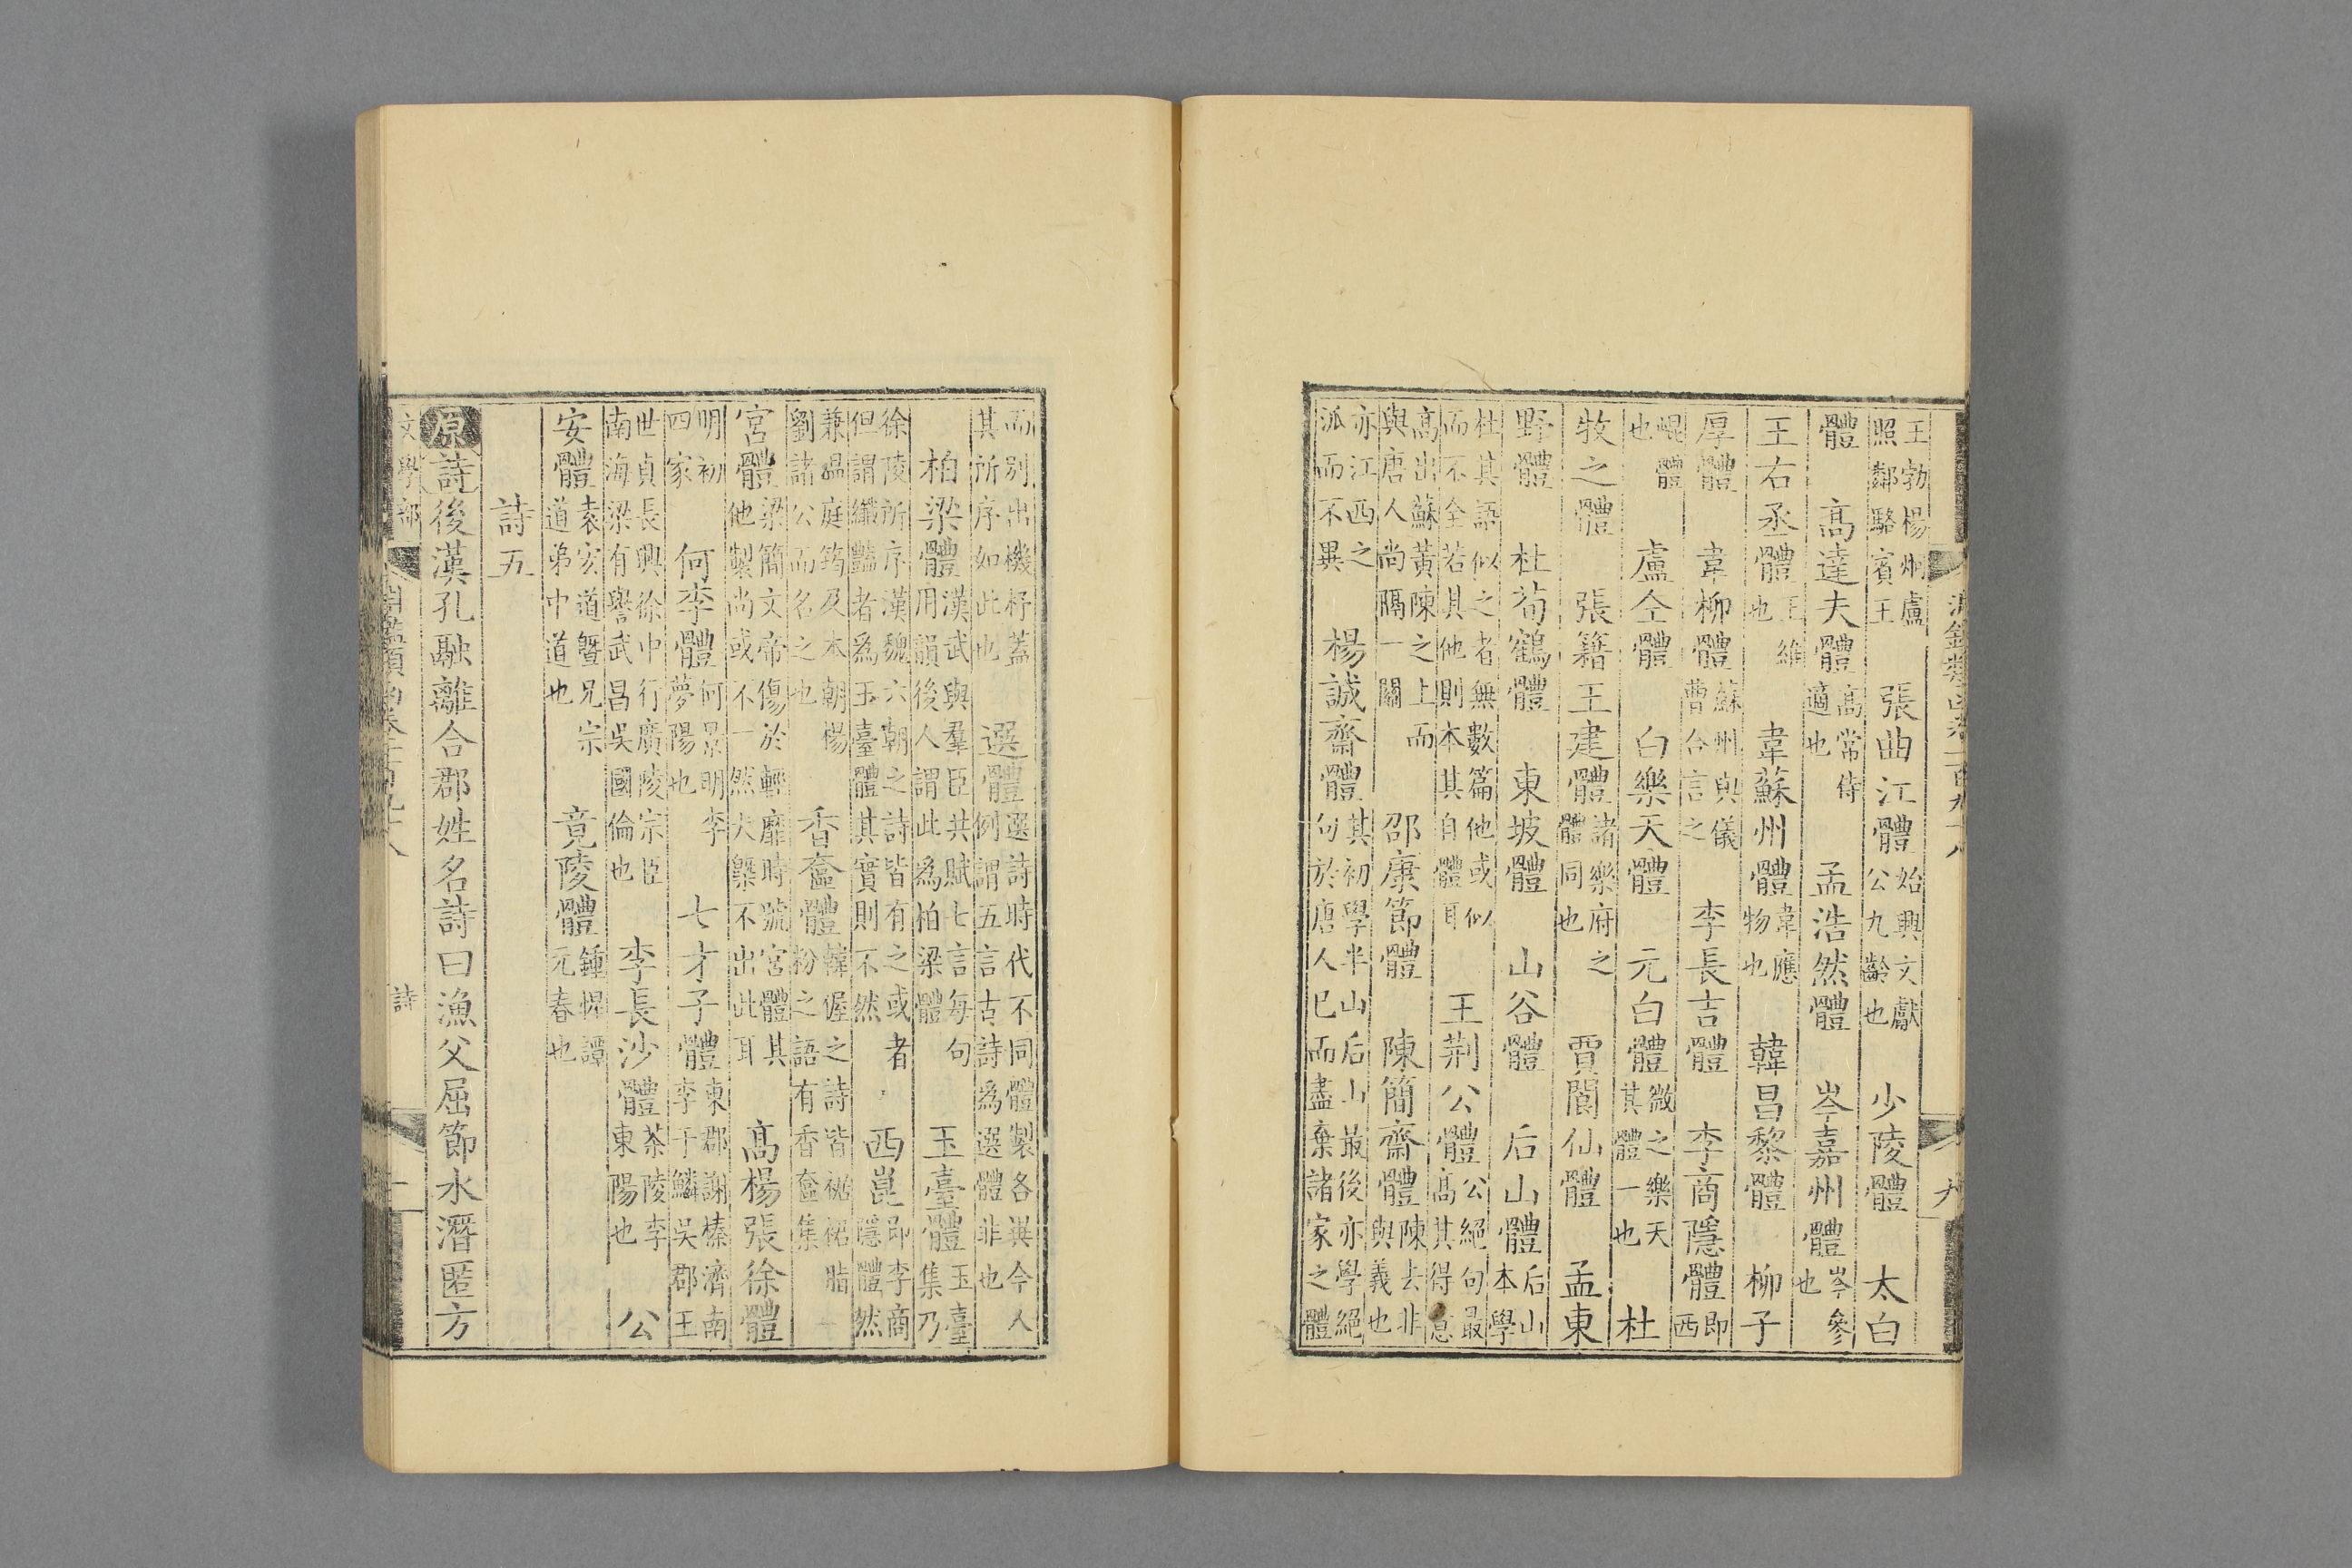 淵鑑類函卷一百九十八 九
王勃楊烱盧照鄰駱賓王 張曲江體 始興文獻公九齡也 少陵體 太白
體 高達夫體 高常侍適也 孟浩然體 岑嘉州體 岑參也
王右丞體 王維也 韋蘇州體 韋應物也 韓昌黎體 柳子
厚體 韋柳體 蘇州與儀曹合言之 李長吉體 李商隱體 即西
崐體也 盧仝體 白樂天體 元白體 微之樂天其體一也 杜
牧之體 張籍王建體 諸樂府之體同也 賈閬仙體 孟東
野體 杜荀鶴體 東坡體 山谷體 后山體 后山本學
杜其語似之者無數篇他或似而不全若其他則本其自體耳 王荆公體 公絕句最高其得意
高出蘇黃陳之上而與唐人尚隔一關 邵康節體 陳簡齋體 陳去非與義也
亦江西之派而不異 楊誠齋體 其初學半山后山最後亦學絕句於唐人已而盡棄諸家之體
而別出機杼蓋其所序如此也 選體 選詩時代不同體製各異今人例謂五言古詩爲選體非也
柏梁體 漢武與羣臣共賦七言每句用韻後人謂此爲柏梁體 玉臺體 玉臺集乃
徐陵所序漢魏六朝之詩皆有之或者但謂纖豔者爲玉臺體其實則不然 西崑 即李商隱體然
兼溫庭筠及本朝楊劉諸公而名之也 香奩體 韓偓之詩皆裾裙脂粉之語有香奩集
宮體 梁簡文帝傷於輕靡時號宮體其他製尚或不一然大槩不出此耳 高楊張徐體
明初四家 何李體 何景明李夢陽也 七才子體 東郡謝榛濟南李于鱗吳郡王
世貞長興徐中行廣陵宗臣南海梁有譽武昌吳國倫也 李長沙體 茶陵李東陽也 公
安體 袁宏道曁兄宗道弟中道也 竟陵體 鍾惺譚元春也
詩五
原詩後漢孔融離合郡姓名詩曰漁父屈節水潛匿方
文學部 詩